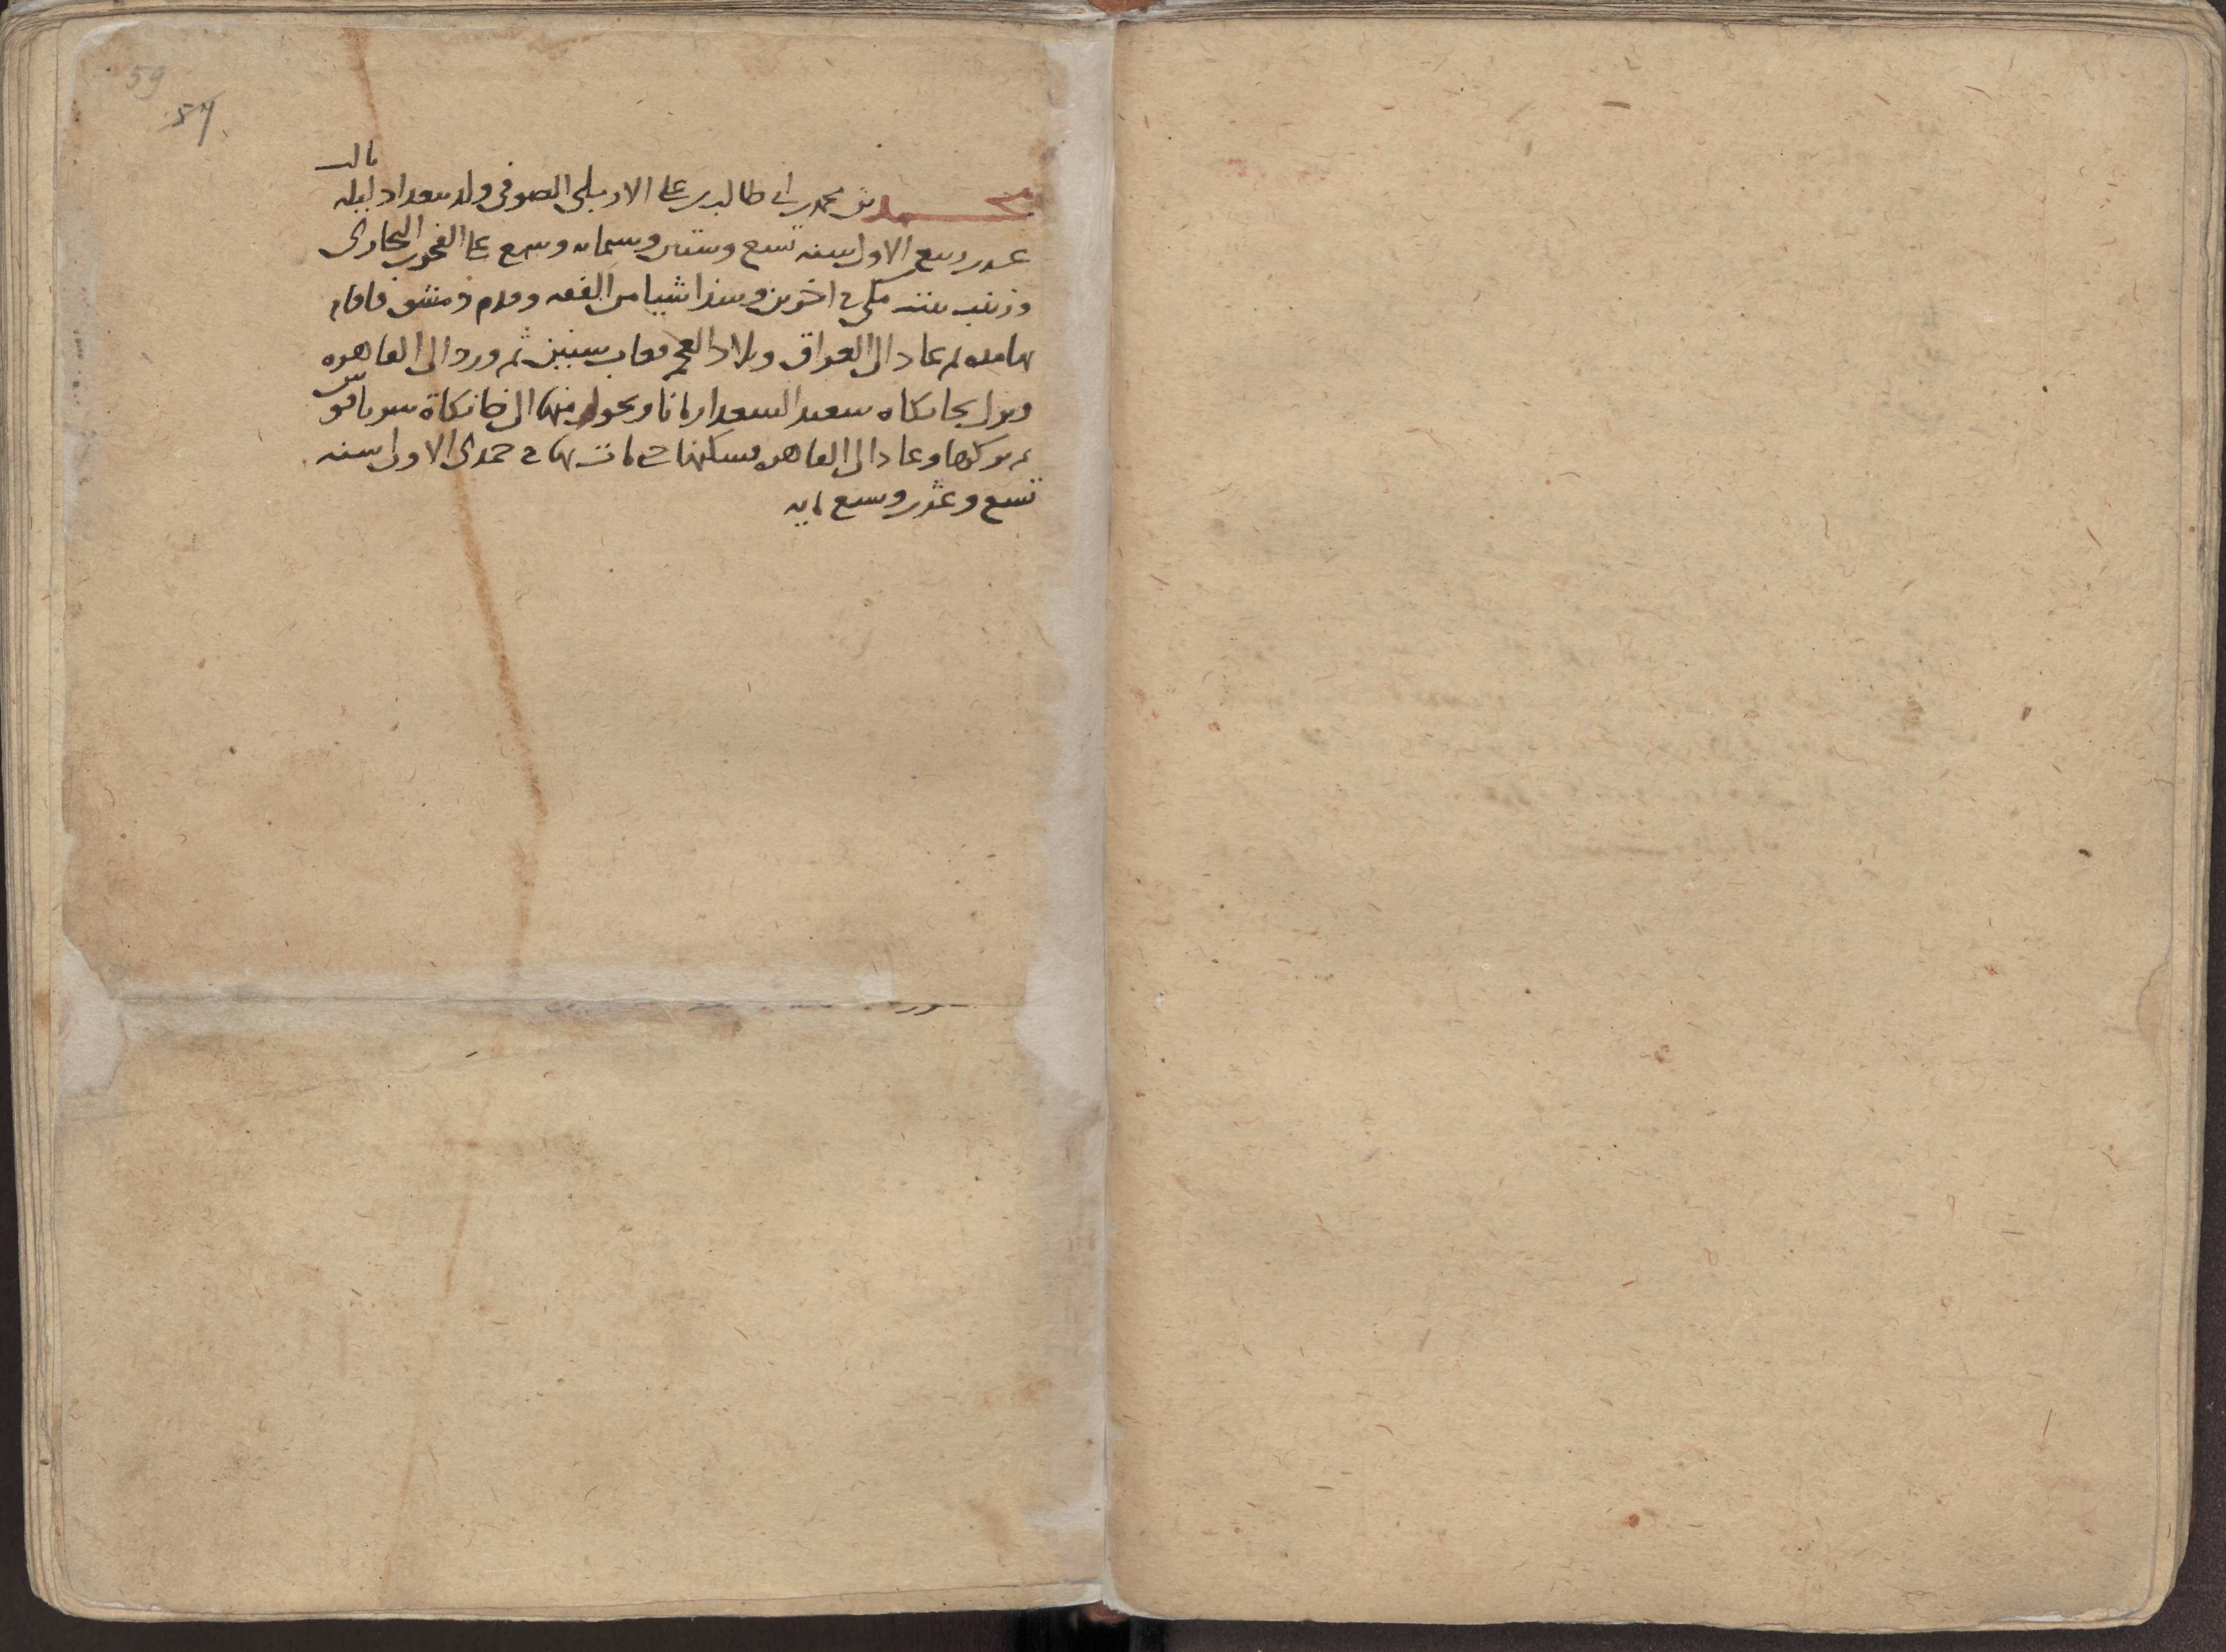 59
57
محمد بن محمد بن ابي طالب بن علي الاردبيلي الصوفي ولد ببغداد ليلة ثالث
عشر ربيع الاول سنة تسع وستين وستمائة وسمع على الفخر بن البخاري
وزينب بنت مكي في اخرين وشدا شيئا من الفقه وقدم دمشق فاقام
بها مدة ثم عاد الى العراق وبلاد العجم فغاب سنين ثم ورد الى القاهرة
ونزل بخانكاه سعيد السعدا زمانا وتحول منها الى خانكاة سرياقوس
ثم تركها وعاد الى القاهرة فسكنها حتى مات بها في جمدى الاولى سنة
تسع وعشرين وسبع ماية